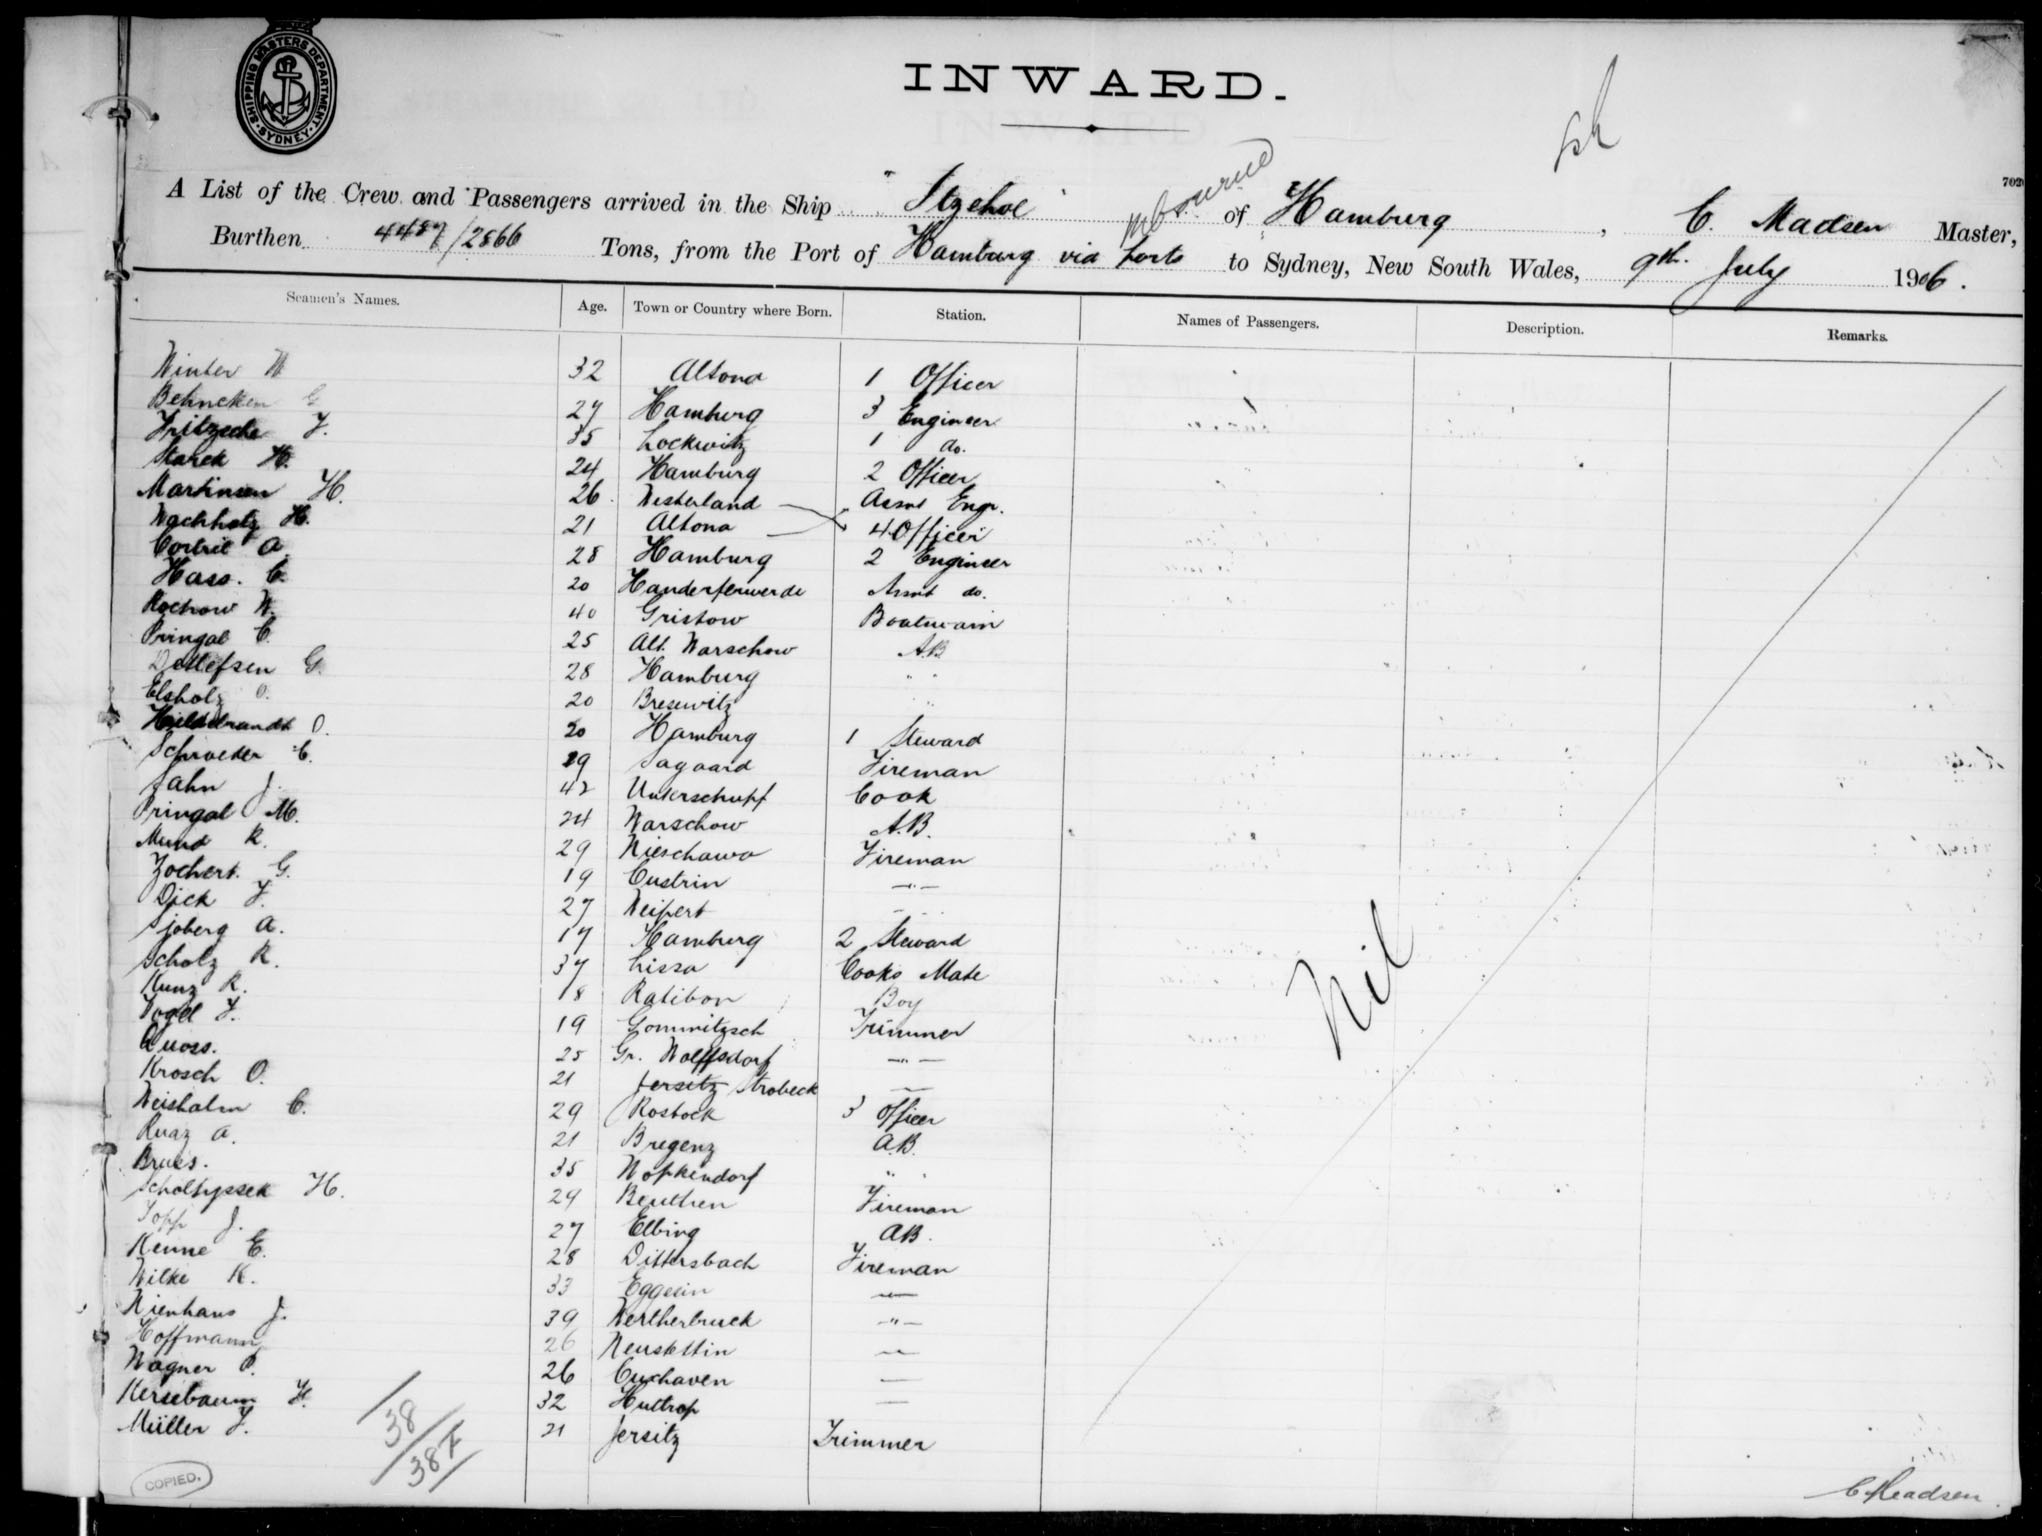 SHIPPING MASTERS DEPARTMENT. SYDNEY.
INWARD.
702
A List of the Crew and Passengers arrived in the Ship "Itzehoe" of Hamburg, C. Madsen Master,
Burthen 4487/2866 Tons, from the Port of Hamburg via ports Mbourne to Sydney, New South Wales, 9th. July 1906.
Seamen's Names. Age. Town or Country where Born. Station. Names of Passengers. Description. Remarks.
Winter W 32 Altona 1 Officer
Behncken G 27 Hamburg 3 Engineer
Fritzsche F. 35 Lockwitz 1 do.
Starck H. 24 Hamburg 2 Officer
Martinsen H. 26 Westerland Assnt Engr.
Wachholz H. 21 Altona 4 Officer
A 28 Hamburg 2 Engineer
Hass. C. 20 Handerferwerde Assnt do.
Rochow W. 40 Gristow Boatswain
Pringal C. 25 Alt. Warschow A.B.
Detlefsen G. 28 Hamburg " "
Elsholz O. 20 Bresewitz " "
Hildebrandt O. 20 Hamburg 1 Steward
Schroeder C. 29 Sagaard Fireman
Jahn J. 42 Unterschupf Cook
Pringal M. 24 Warschow A.B.
Mund R. 29 Nieschawa Fireman
Zochert. G. 19 Custrin —"—
Dick F. 27 Weipert —"—
Sjoberg A. 17 Hamburg 2 Steward
Scholz R. 37 Lissa Cooks Mate
Kunz R. 18 Ratibor Boy
Vogel F. 19 Gommitzsch Trimmer
Quoss. 25 Gr. Wolffsdorf —"—
Krosch O. 21 Jersitz Strobeck —
Weisholm C. 29 Rostock 3 Officer
A. 21 Bregenz A.B.
35 Wopkendorf " "
Scholtyssek H. 29 Beuthen Fireman
Topp J. 27 Elbing AB.
Kenne E. 28 Dittersbach Fireman
Wilke K. 33 Eggesin —"—
Nienhaus J. 39 Wertherbruck —"—
Hoffmann 26 Neustettin —"—
Wagner O. 26 Cuxhaven —
Kersebaum H. 32 Huttrop —
Müller F. 21 Jersitz Trimmer
Nil
38
38 F
COPIED.
C Madsen.